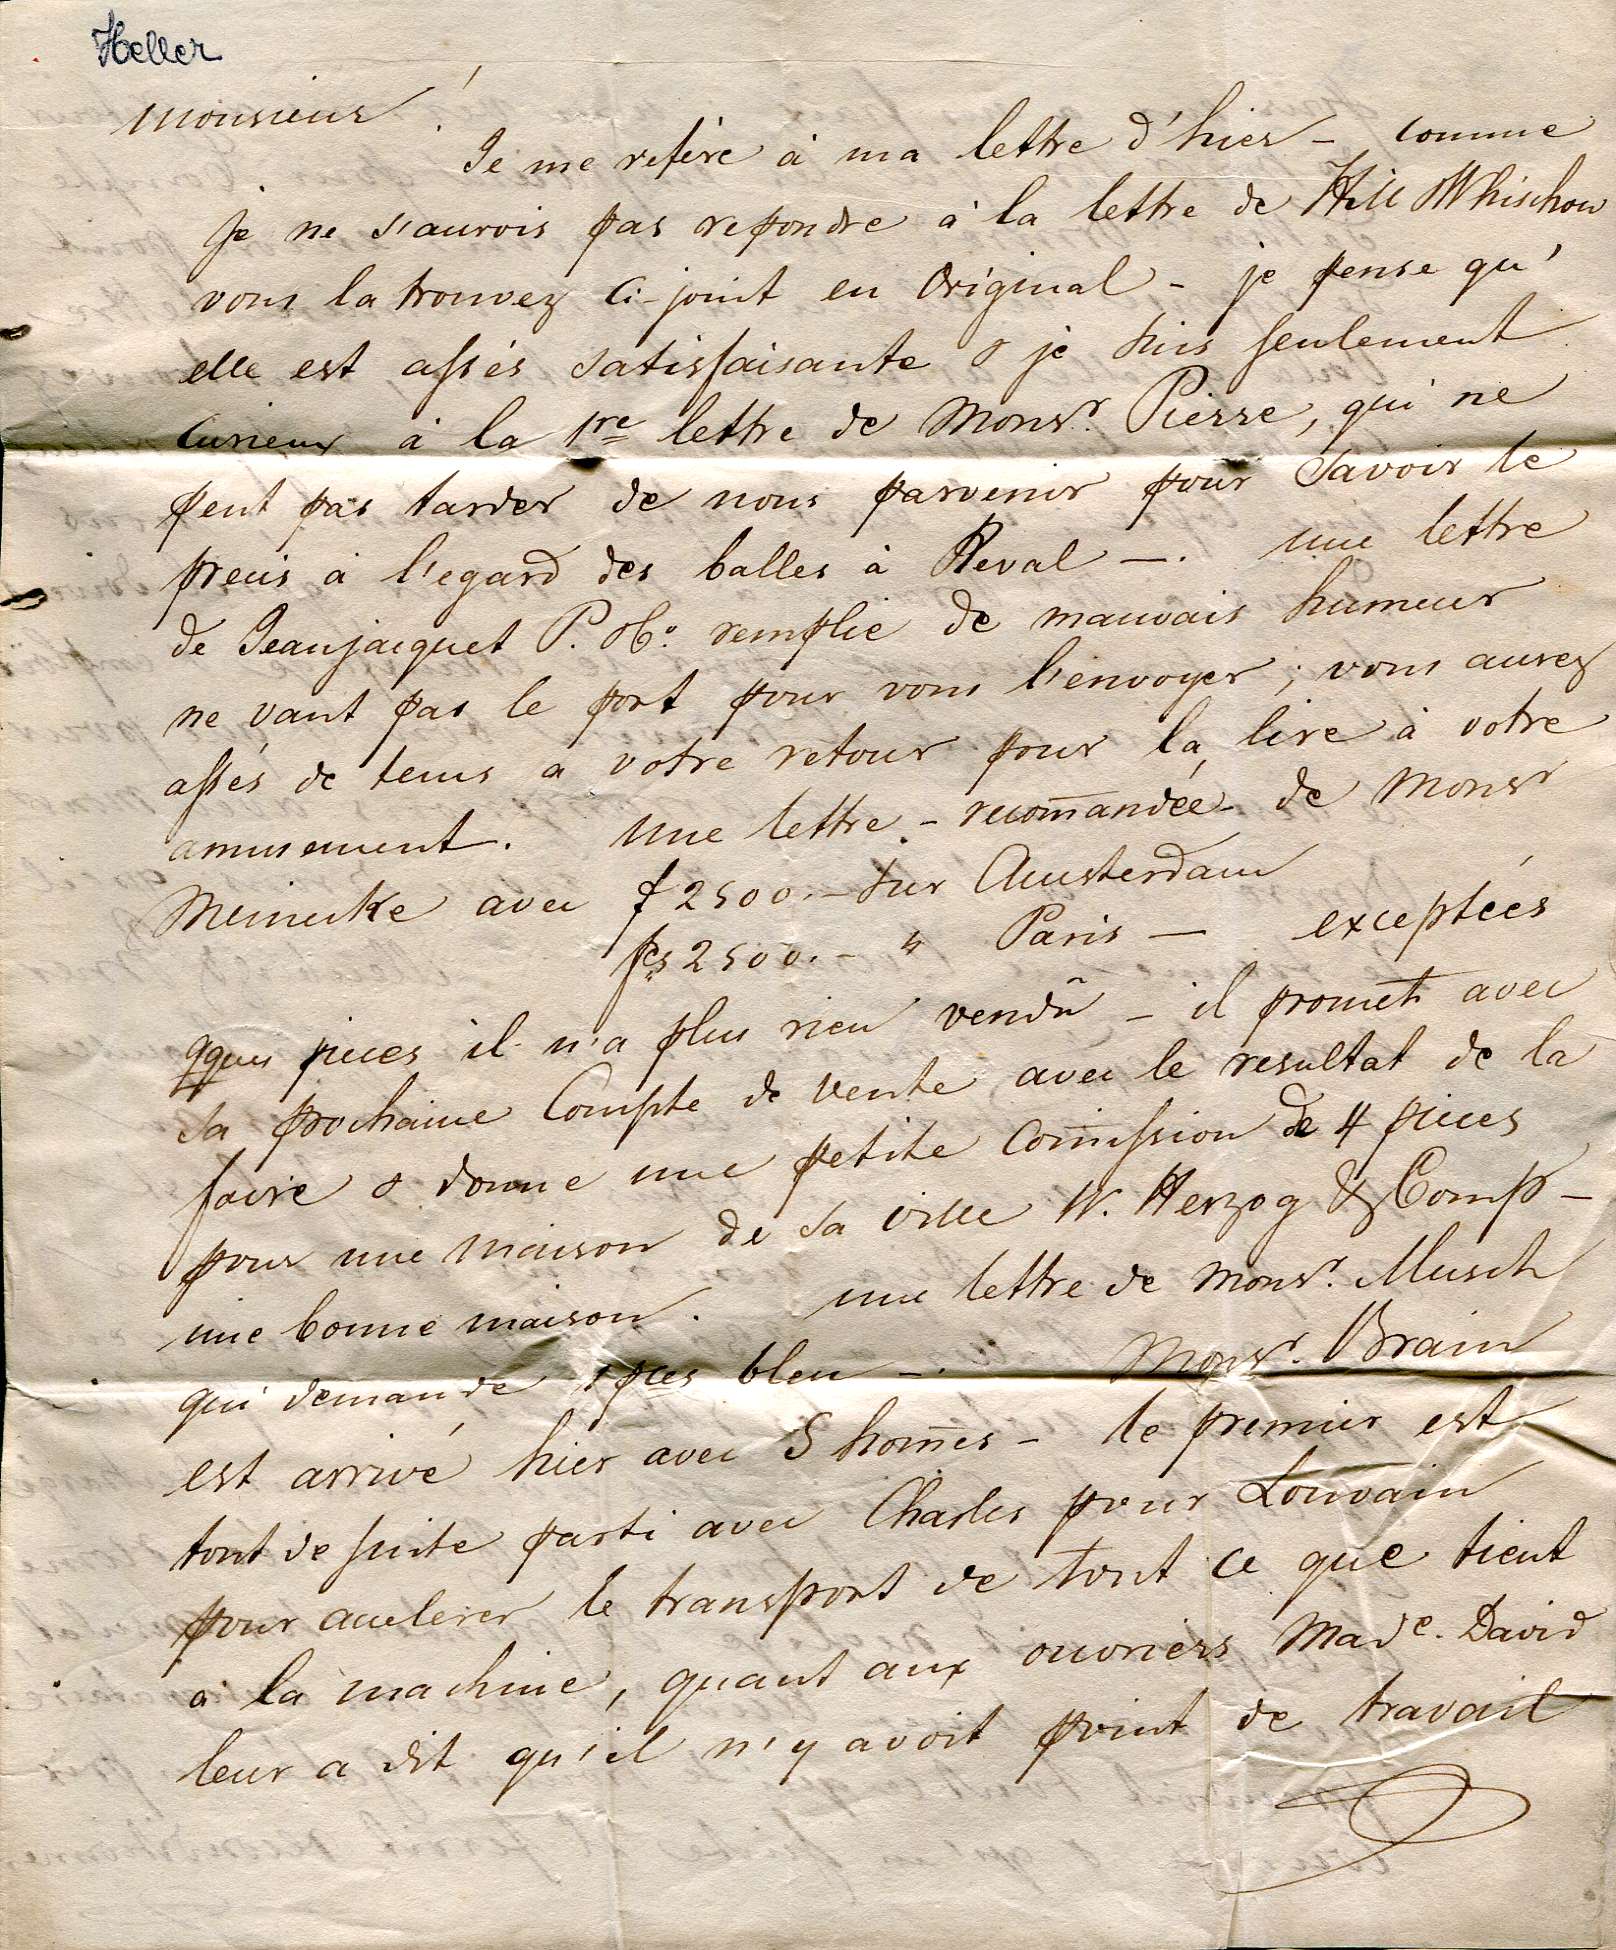 Heller
Monsieur !
Je me refère à ma lettre d'hier – comme
je ne s'aurois pas repondre à la lettre de Hill Whishow
vous la trouvez ci-joint en Original – je pense qu'
elle est assés satisfaisante & je suis seulement
curieux à la 1re lettre de Monsr. Pierre, qui ne
peut pas tarder de nous parvenir pour savoir le
precis à l'egard des balles à Reval –. une lettre
de Jeanjaquet P. & Co. remplie de mauvais humeur
ne vaut pas le port pour vous l'envoyer ; vous aurez
assés de tems a votre retour pour la lire à votre
amusement. Une lettre – recom̄andée – de Monsr
Meinecke avec f 2500.– sur Amsterdam
fcs 2500.– " Paris – exceptées
qques pieces il n'a plus rien vendû – il promet avec
sa prochaine Compte de vente avec le resultat de la
foire & donne une petite Com̄ission de 4 pieces
pour une maison de sa ville W. Herzog & Comp –
une bonne maison. une lettre de Monsr. Musch
qui demande 1 pces bleu –. Monsr. Brain
est arrivé hier avec 5 hom̄es – le premier est
tout de suite parti avec Charles pour Louvain
pour accelerer le transport de tout ce que tient
a la machine, quant aux ouvriers Made. David
leur a dit qu'il n'y avoit point de travail